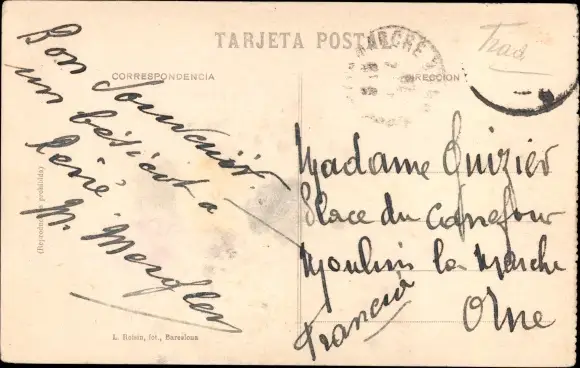 TARJETA POSTAL
CORRESPONDENCIA
DIRECCION
MARCHE
Trad
Bon Souvenir
un
a
René
M.
Madame Quizier
Place du Carrefour
Moulins la Marche
Orne
Francia
(Reproducción prohibida)
L. Roisin, fot., Barcelona